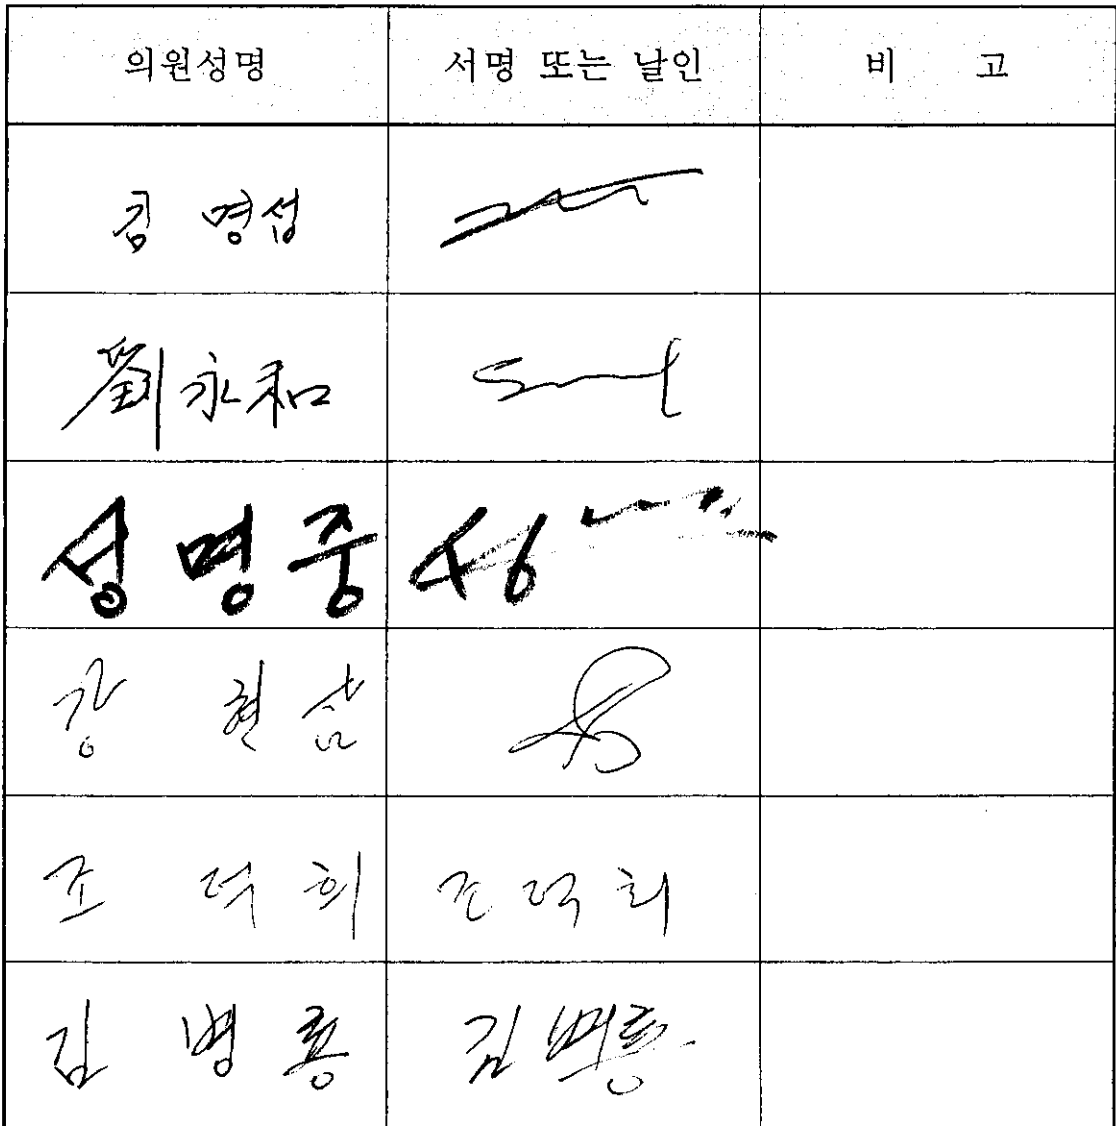 의원성명 서명 또는 날인 비 고
김 명섭
劉永和
성명중 성
강 현삼
조 덕희 조덕희
김 병룡 김병룡